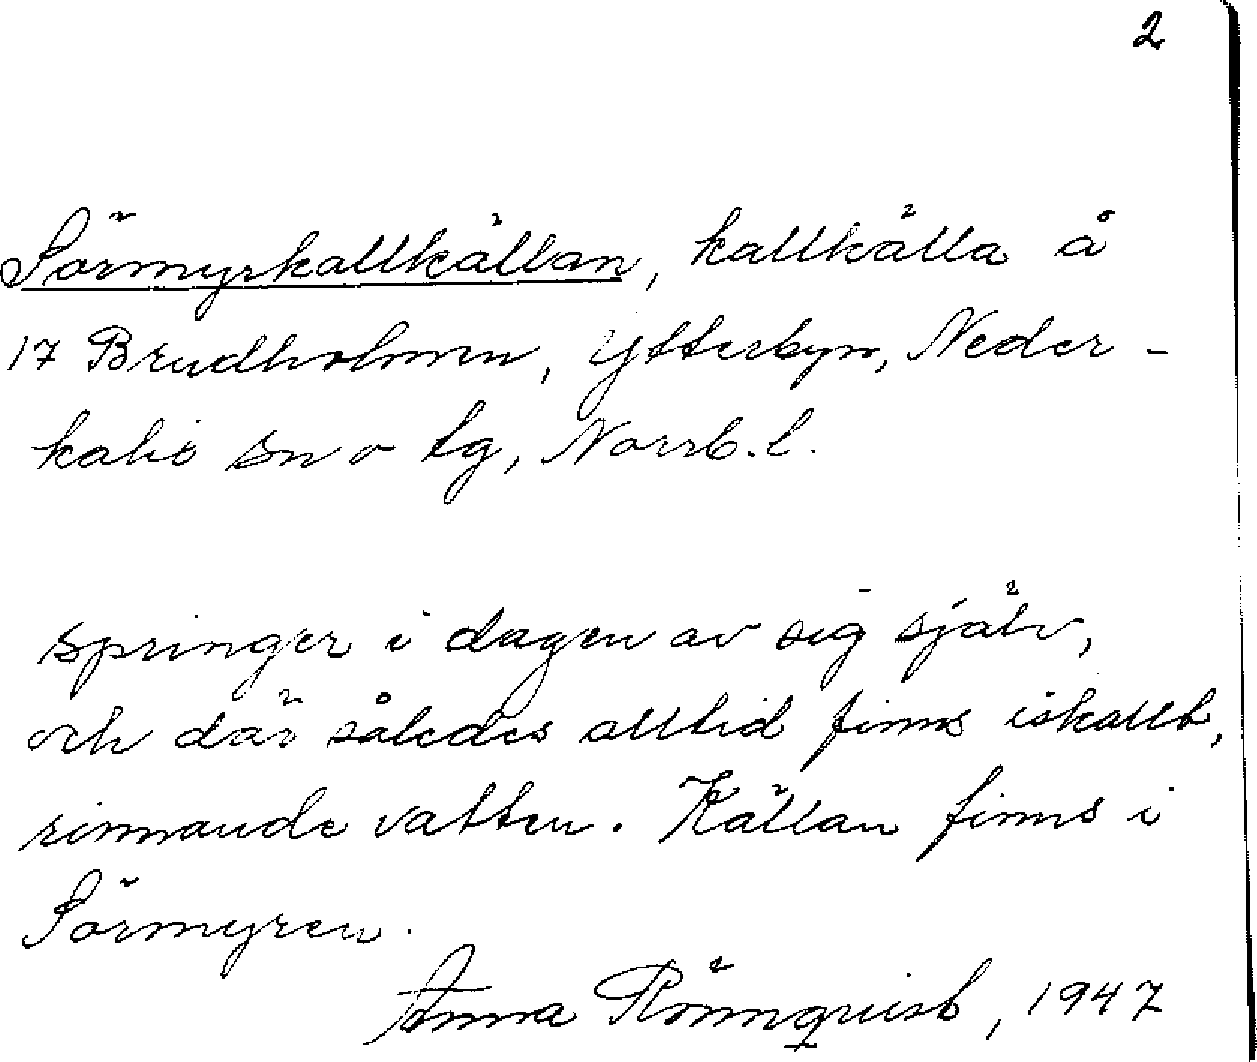 2
Sörmyrkallkällan, kallkälla å
17 Brudholmen, Ytterbyn, Neder-
kalix sn o tg, Norrb. l.
springer i dagen av sig själv,
och där således alltid finns iskallt,
rinnande vatten. Källan finns i
Sörmyren.
Anna Rönnquist, 1947